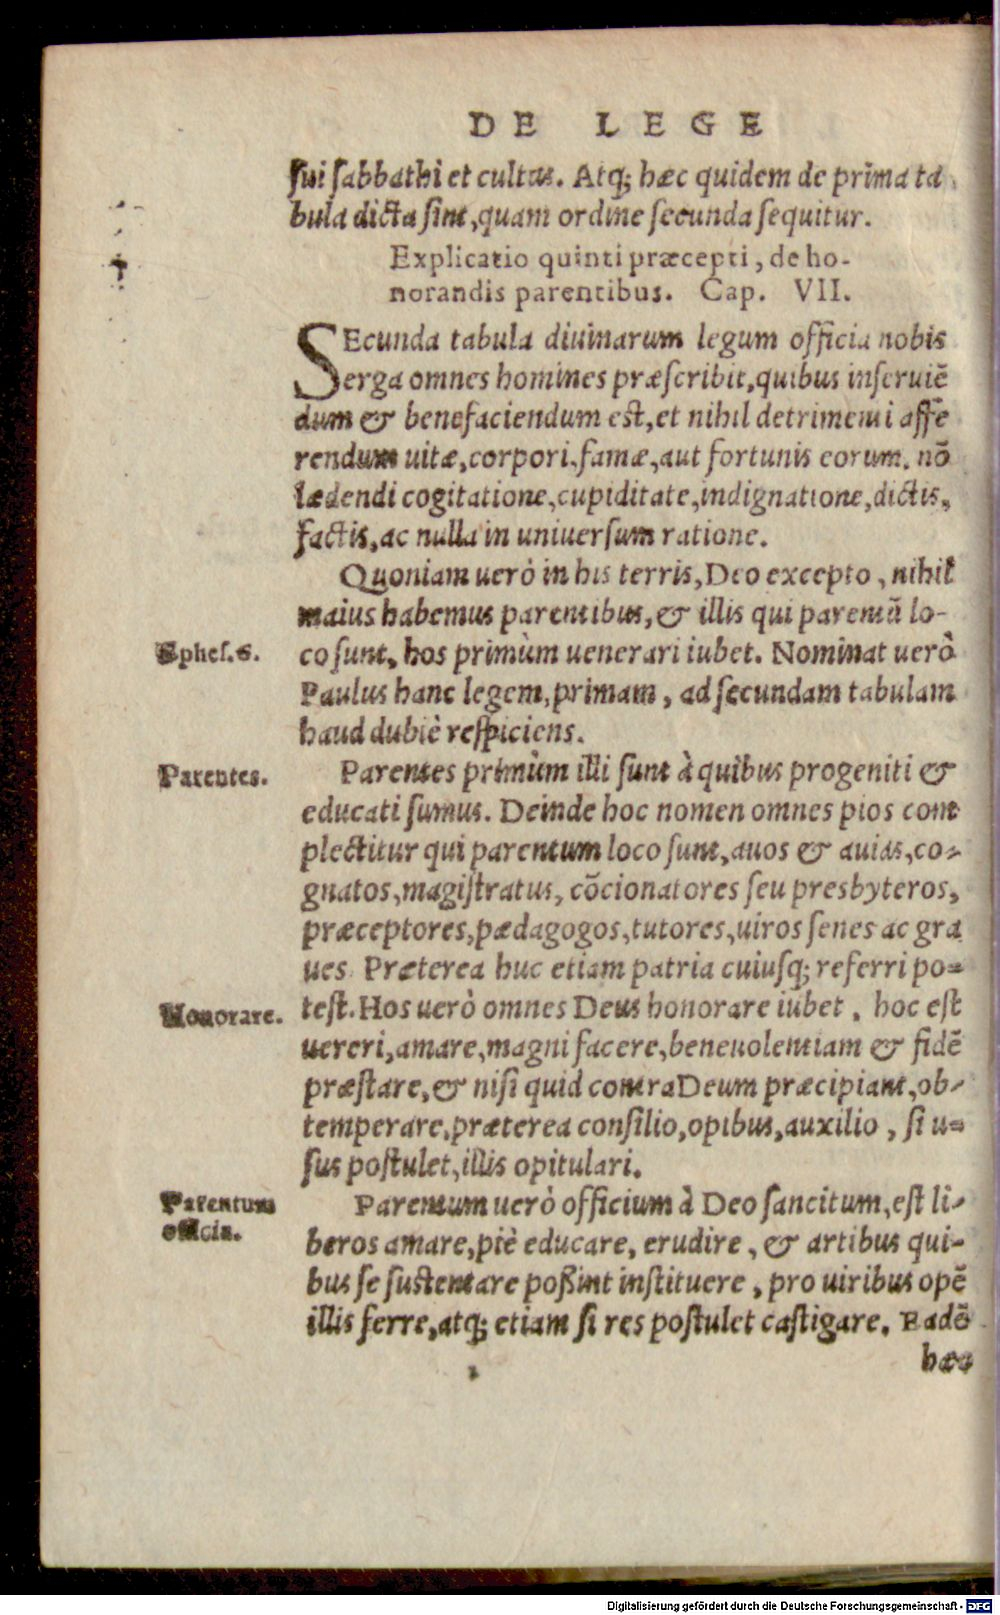 DE LEGE
sui sabbathi et cultus. Atq; hæc quidem de prima ta
bula dicta sint, quam ordine secunda sequitur.
Explicatio quinti præcepti, de ho-
norandis parentibus. Cap. VII.
SEcunda tabula diuinarum legum officia nobis
erga omnes homines præscribit, quibus inseruiē
dum & benefaciendum est, et nihil detrimenti affe
rendum uitæ, corpori, famæ, aut fortunis eorum. nō
lædendi cogitatione, cupiditate, indignatione, dictis,
factis, ac nulla in uniuersum ratione.
Quoniam uerò in his terris, Deo excepto, nihil
maius habemus parentibus, & illis qui parentū lo-
Ephes. 6.
co sunt, hos primùm uenerari iubet. Nominat uerò
Paulus hanc legem, primam, ad secundam tabulam
haud dubiè respiciens.
Parentes.
Parentes primùm illi sunt à quibus progeniti &
educati sumus. Deinde hoc nomen omnes pios com
plectitur qui parentum loco sunt, auos & auias, co-
gnatos, magistratus, cōcionatores seu presbyteros,
præceptores, pædagogos, tutores, uiros senes ac gra
ues. Præterea huc etiam patria cuiusq; referri po-
Honorare.
test. Hos uerò omnes Deus honorare iubet, hoc est
uereri, amare, magni facere, beneuolentiam & fidē
præstare, & nisi quid contra Deum præcipiant, ob-
temperare, præterea consilio, opibus, auxilio, si u-
sus postulet, illis opitulari.
Parentum
officia.
Parentum uerò officium à Deo sancitum, est li-
beros amare, piè educare, erudire, & artibus qui-
bus se sustentare poßint instituere, pro uiribus opē
illis ferre, atq; etiam si res postulet castigare. Eadē
hæc
Digitalisierung gefördert durch die Deutsche Forschungsgemeinschaft - DFG